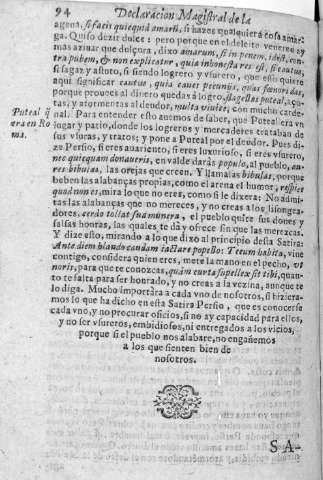 94 Declaracion Magistral de la
agena, si facis quicquid amarũ, si hazes qualquiera cosa amar-
ga. Quiso dezir dulce: pero porque en el deleite venereo ay
mas azivar que dulçura, dixo amarum, si in penem, idest, con-
tra pubem, & non explicatur, quia inhonesta res est, si cautus,
si sagaz y astuto, si siendo logrero y vsurero, que esto quiere
aqui significar cautus, quia cauet pecunijs, quas fœnori das,
porque prouoces al dinero quedas à logro, flagellas puteal, açu-
tas, y atormentas al deudor, multa vivice, con mucho carde-
nal. Para entender esto auemos de saber, que Puteal era vn
lugar y patio, donde los logreros y mercaderes tratauan de
sus vsuras, y trazos; y pone a Puteal por el deudor. Pues di-
ze Persio, si eres auariento, si eres luxurioso, si eres vsurero,
nec quicquam donaueris, en valde darás populo, al pueblo, au-
res bibulas, las orejas que creen, Y llamalas bibulas, porque
beben las alabanças propias, como el arena el humor, respue
quod non es, mira lo que no eres, como si le dixera: No admi-
tas las alabanças que no mereces, y no creas a los lisongea-
dores, cerdo tollat sua munera, el pueblo quite sus dones y
falsas honras, las quales te dà y ofrece sin que las merezcas.
Y dize esto, mirando a lo que dixo al principio desta Satira:
Ante diem blando caudam iactare popello: Tecum habita, viue
contigo, considera quien eres, mete la mano en el pecho, vt
noris, para que te conozcas, quàm curta supellex sit tibi, quan-
to te falta para ser honrado, y no creas a la vezina, aunque te
lo diga. Mucho importàra a cada vno de nosotros, si hiziera-
mos lo que ha dicho en esta Satira Persio, que es conocerse
cada vno, y no procurar oficios, si no ay capacidad para ellos,
y no ser vsureros, embidiosos, ni entregados a los vicios,
porque si el pueblo nos alabare, no engañemos
a los que sienten bien de
nosotros.
Puteal q̃
era en Ro
ma.
S A-